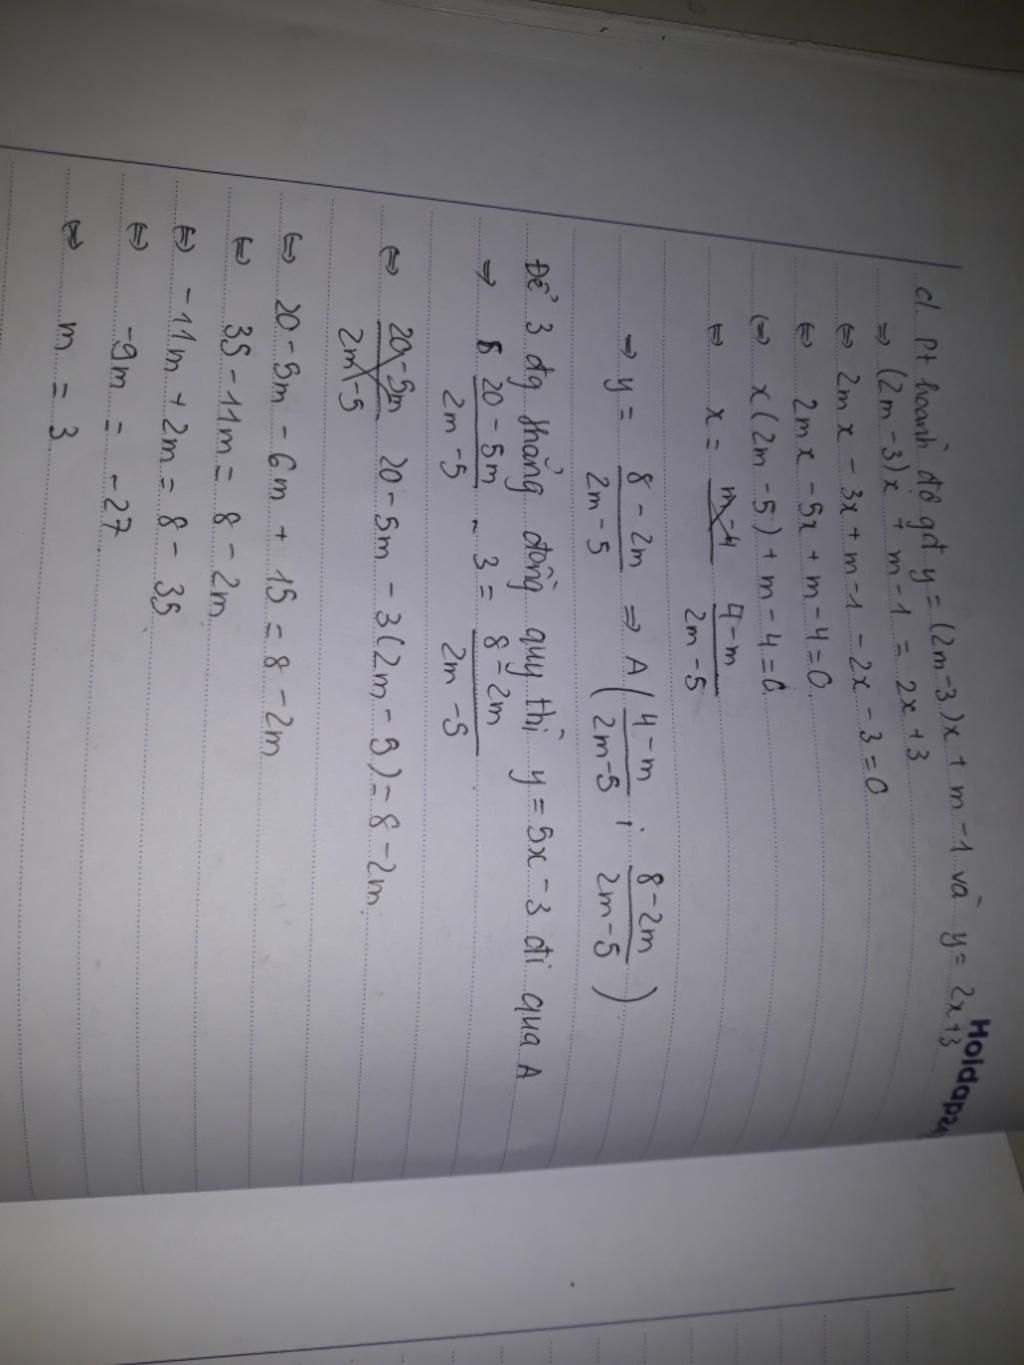 Hoidap247
d. Pt hoành độ gđ y = (2m-3)x + m-1 và y = 2x+3
⇒ (2m-3)x + m-1 = 2x+3
⇔ 2mx - 3x + m-1 - 2x - 3 = 0
⇔ 2mx - 5x + m-4 = 0
⇔ x(2m-5) + m-4 = 0
⇔ x = m-4 4-m / 2m-5
⇒ y = 8-2m / 2m-5 ⇒ A (4-m / 2m-5 ; 8-2m / 2m-5)
Để 3 đg thẳng đồng quy thì y = 5x-3 đi qua A
⇒ 20-5m / 2m-5 - 3 = 8-2m / 2m-5
⇔ 20-5m / 2m-5 20-5m - 3(2m-5) = 8-2m
⇔ 20-5m - 6m + 15 = 8-2m
⇔ 35-11m = 8-2m
⇔ -11m + 2m = 8-35
⇔ -9m = -27
⇔ m = 3